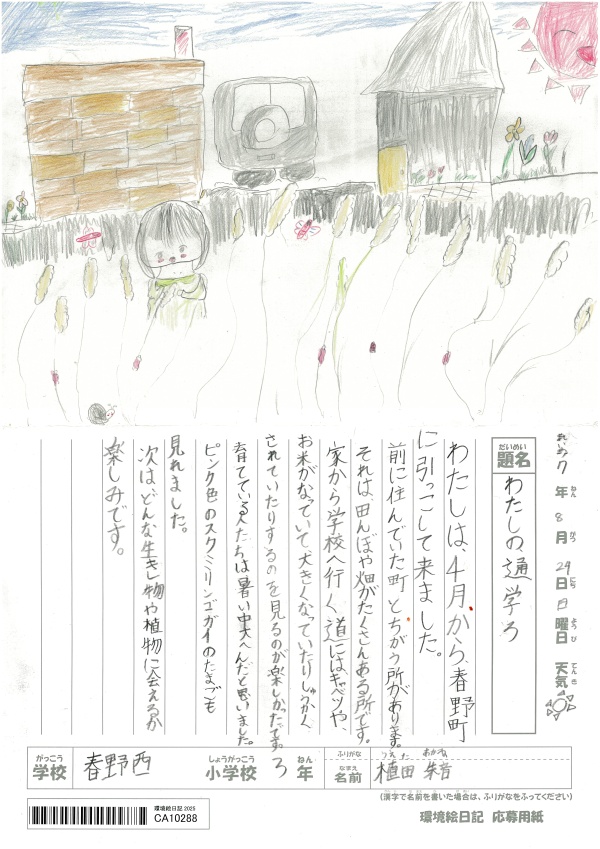 れいわ7年8月24日日曜日 天気
ねん がつ にち ようび てんき
だいめい
題名 わたしの通学ろ
わたしは、4月から春野町
に引っこして来ました。
前に住んでいた町とちがう所があります。
それは、田んぼや畑がたくさんある所です。
家から学校へ行く道にはキャベツや、
お米がなっていて大きくなっていたりしゅうかく
されていたりするのを見るのが楽しかったです。
育てている人たちは暑い中大へんだと思いました。
ピンク色のスクミリンゴガイのたまごも
見れました。
次はどんな生きし物や植物に会えるか
楽しみです。
がっこう しょうがっこう ねん ふりがな うえた あかね
学校 春野西 小学校 3年 なまえ 名前 植田 朱音
(漢字で名前を書いた場合は、ふりがなをふってください)
環境絵日記 2025
CA10288
環境絵日記 応募用紙